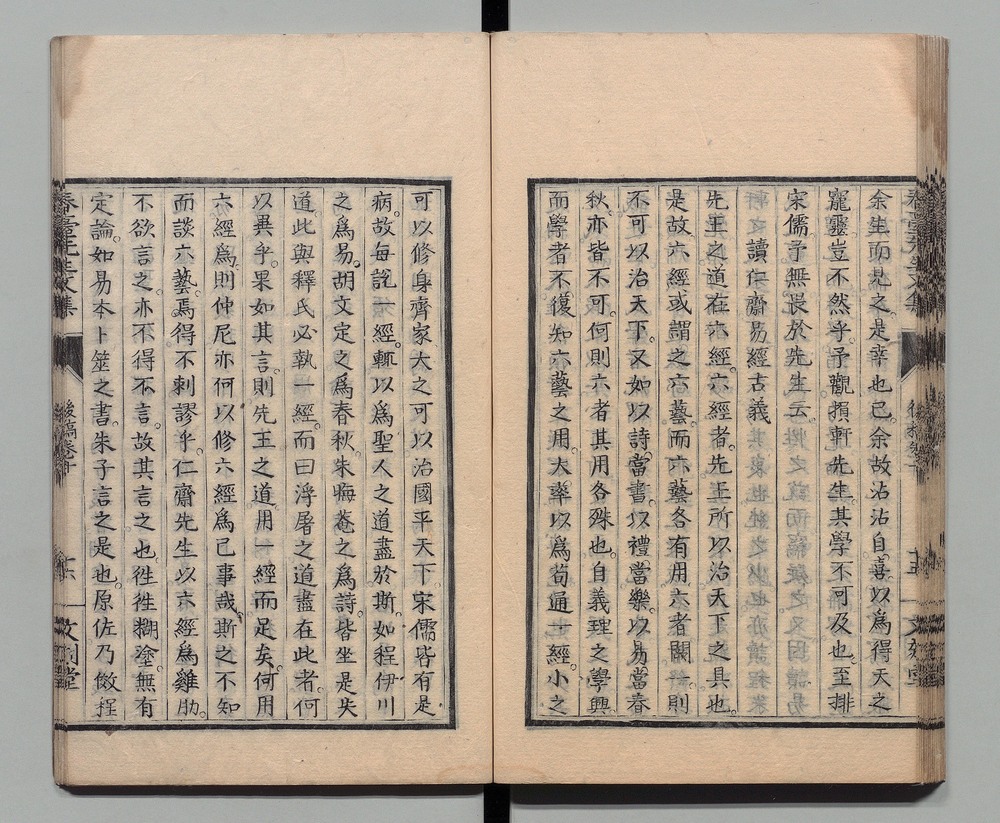 余生而見之是幸也已余故沾沾自喜以爲得天之
寵靈豈不然乎予觀損軒先生其學不可及也至排
宋儒予無畏於先生云
讀仁齋易經古義
先王之道在六經六經者先王所以治天下之具也
是故六經或謂之六藝而六藝各有用六者闕一則
不可以治天下又如以詩當書以禮當樂以易當春
秋亦皆不可何則六者其用各殊也自義理之學興
而學者不復知六藝之用大率以爲苟通一經小之
可以修身齊家大之可以治國平天下宋儒皆有是
病故每説一經輒以爲聖人之道盡於斯如程伊川
之爲易胡文定之爲春秋朱晦菴之爲詩皆坐是失
道此與釋氏必執一經而曰浮屠之道盡在此者何
以異乎果如其言則先王之道用一經而足矣何用
六經爲則仲尼亦何以修六經爲己事哉斯之不知
而談六藝焉得不刺謬乎仁齋先生以六經爲雞肋
不欲言之亦不得不言故其言之也徃徃糊塗無有
定論如易本卜筮之書朱子言之是也原佐乃倣程
後稿卷十